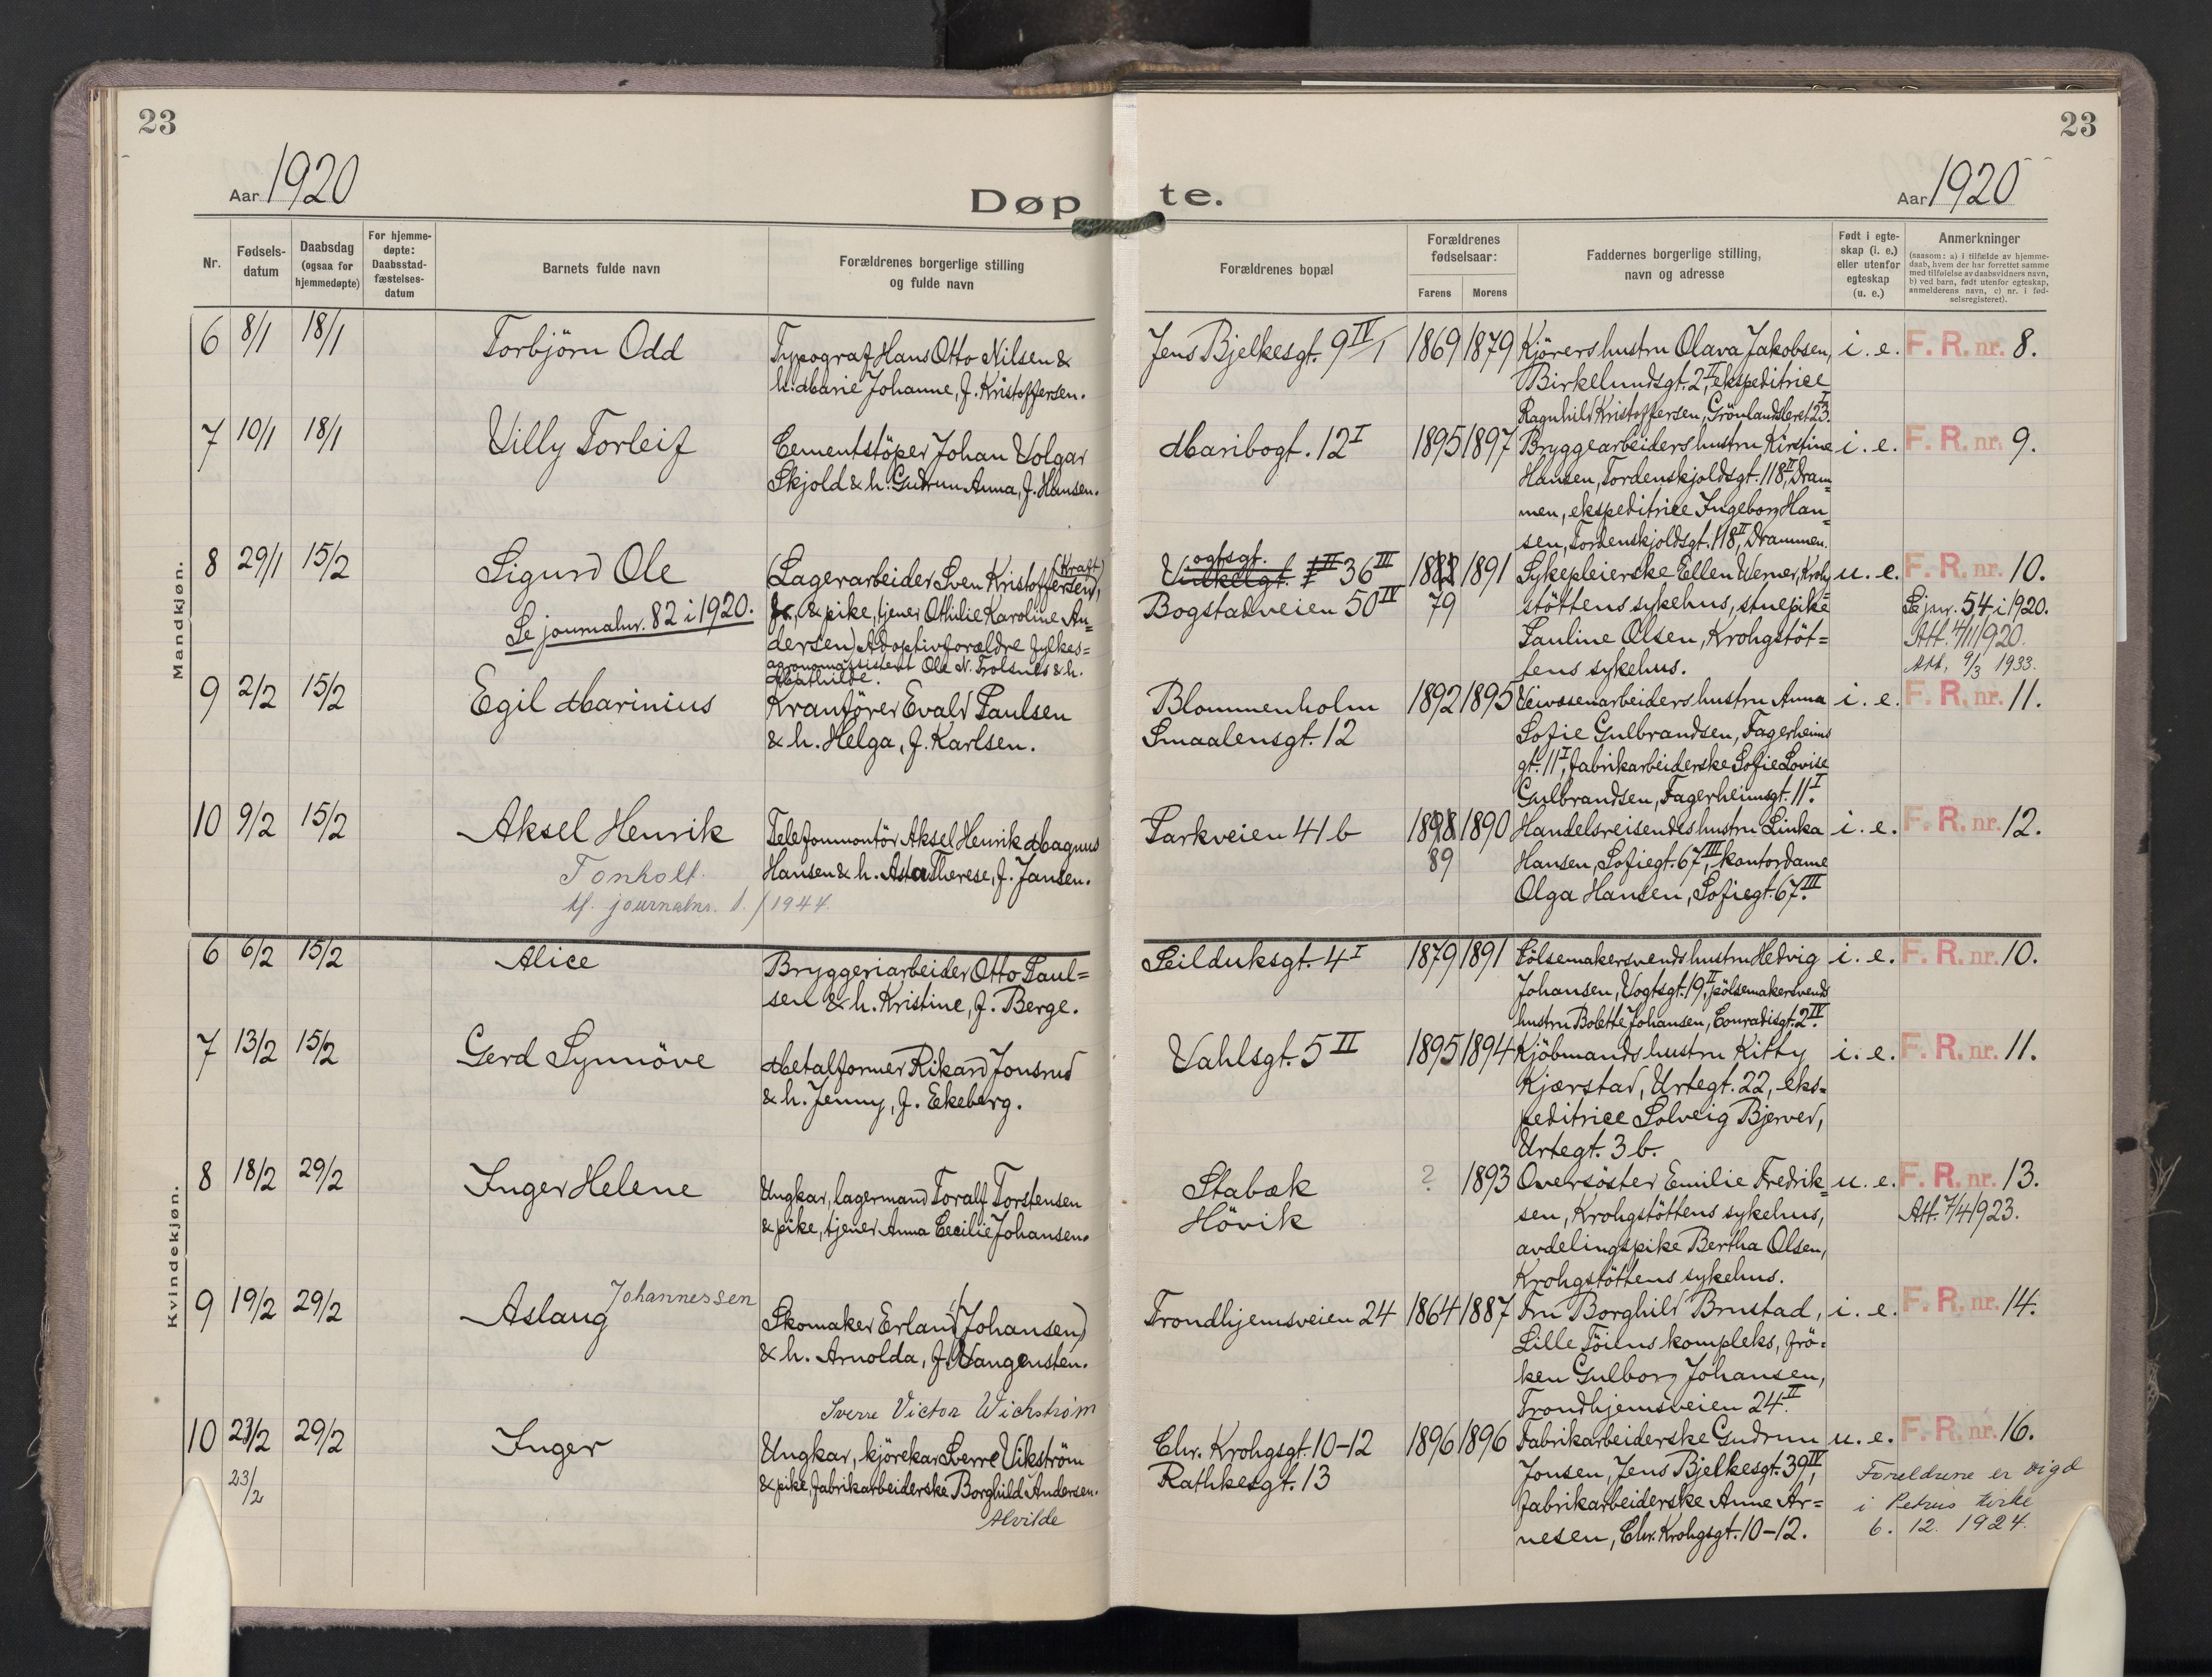 23
23
Aar 1920
Døpte.
Aar 1920
Nr.
Fødsels-
datum
Daabsdag
(ogsaa for
hjemmedøpte)
For hjemme-
døpte:
Daabsstad-
fæstelses-
datum
Barnets fulde navn
Forældrenes borgerlige stilling
og fulde navn
Forældrenes bopæl
Forældrenes
fødselsaar:
Farens Morens
Faddernes borgerlige stilling,
navn og adresse
Født i egte-
skap (i. e.)
eller utenfor
egteskap
(u. e.)
Anmerkninger
(saasom: a) i tilfælde av hjemme-
daab, hvem der har forrettet samme
med tilføielse av daabsvidners navn,
b) ved barn, født utenfor egteskap,
anmelderens navn, c) nr. i fød-
selsregisteret).
Mandkjøn.
6 8/1 18/1 Torbjörn Odd
Typograf Hans Otto Nilsen &
h. Marie Johanne, f. Kristoffersen.
Jens Bjelkesgt. 9 IV/1 1869 1879
Kjörers hustru Olava Jakobsen,
Birkelundsgt. 2 II, ekspeditrice
Ragnhild Kristoffersen, Grönlandsleret 23 I.
i. e. F. R. nr. 8.
7 10/1 18/1 Villy Torleif
Cementstöper Johan Volgar
Skjold & h. Gudrun Anna, f. Hansen.
Maribogt. 12 I 1895 1897
Bryggearbeiders hustru Kirstine
Hansen, Tordenskjoldsgt. 118 II, Dram=
men, ekspeditrice Ingeborg Han=
sen, Tordenskjoldsgt. 118 II, Drammen.
i. e. F. R. nr. 9.
8 29/1 15/2 Sigurd Ole
Se journalnr. 82 i 1920.
(Kraft)
(Lagerarbeider Sven Kristoffersen,
& pike, tjener Othilie Karoline An=
dersen) Adoptivforældre fylkes=
agronomassistent Ole N. Trolsnes & h.
Mathilde.
Vogtsgt. 36 III
Bogstadveien 50 IV
1882 1891
79
Sykepleierske Ellen Werner, Kroh=
støttens sykehus, stuepike
Pauline Olsen, Krohgstöt=
tens sykehus.
u. e. F. R. nr. 10.
Se jnr. 54 i 1920.
Att. 4/11 1920.
Att. 9/3 1933.
9 2/2 15/2 Egil Marinius
Kranförer Evald Paulsen
& h. Helga, f. Karlsen.
Blommenholm
Smaalensgt. 12
1892 1895
Veivæsenarbeiders hustru Anna
Sofie Gulbrandsen, Fagerheims
gt. 11 I, fabrikarbeiderske Sofie Lovise
Gulbrandsen, Fagerheimsgt. 11 I.
i. e. F. R. nr. 11.
10 9/2 15/2 Aksel Henrik
Tonholt.
Telefonmontör Aksel Henrik Magnus
Hansen & h. Asta Therese, f. Jansen.
journalnr. 1944.
Parkveien 41 b 1898 1890
89
Handelsreisendes hustru Linka
Hansen, Sofiegt. 67 III, kontordame
Olga Hansen, Sofiegt. 67 III.
i. e. F. R. nr. 12.
Kvindekjøn.
6 6/2 15/2 Alice
Bryggeriarbeider Otto Paul=
sen & h. Kristine, f. Berge.
Seilduksgt. 4 I 1879 1891
Pölsemakersvends hustru Hedvig
Johansen, Vogtsgt. 19 II, pölsemakersvends
hustru Bolette Johansen, Conradisgt. 2 IV.
i. e. F. R. nr. 10.
7 13/2 15/2 Gerd Synnöve
Metalformer Rikard Jonsrud
& h. Jenny, f. Ekeberg.
Vahlsgt. 5 II 1895 1894
Kjöbmands hustru Kitty
Kjærstad, Urtegt. 22, eks=
peditrice Solveig Bjerved,
Urtegt. 3 b.
i. e. F. R. nr. 11.
8 18/2 29/2 Inger Helene
Ungkar, lagermand Toralf Torstensen
& pike, tjener Anna Cecilie Johansen.
Stabæk
Hövik
? 1893
Oversöster Emilie Fredrik=
sen, Krohgstöttens sykehus,
avdelingspike Bertha Olsen,
Krohgstöttens sykehus.
u. e. F. R. nr. 13.
Att. 7/4 1923.
9 19/2 29/2 Aslaug Johannessen
Skomaker Erland (Johansen)
& h. Arnolda, f. Vangensten.
Trondhjemsveien 24 1864 1887
Fru Borghild Brustad,
Lille Töiens kompleks, frö=
ken Gulborg Johansen,
Trondhjemsveien 24 II.
i. e. F. R. nr. 14.
Sverre Victor Wichstrøm
10 23/2 29/2 Inger
23/2
Ungkar, kjörekar Sverre Vikström
& pike, fabrikarbeiderske Borghild Andersen.
Alvilde
Chr. Krohgsgt. 10-12
Rathkesgt. 13
1896 1896
Fabrikarbeiderske Gudrun
Jonsen, Jens Bjelkesgt. 39 IV,
fabrikarbeiderske Anne Ar=
nesen, Chr. Krohgsgt. 10-12.
u. e. F. R. nr. 16.
Foreldrene er vigd
i Petrus kirke
6. 12. 1924.